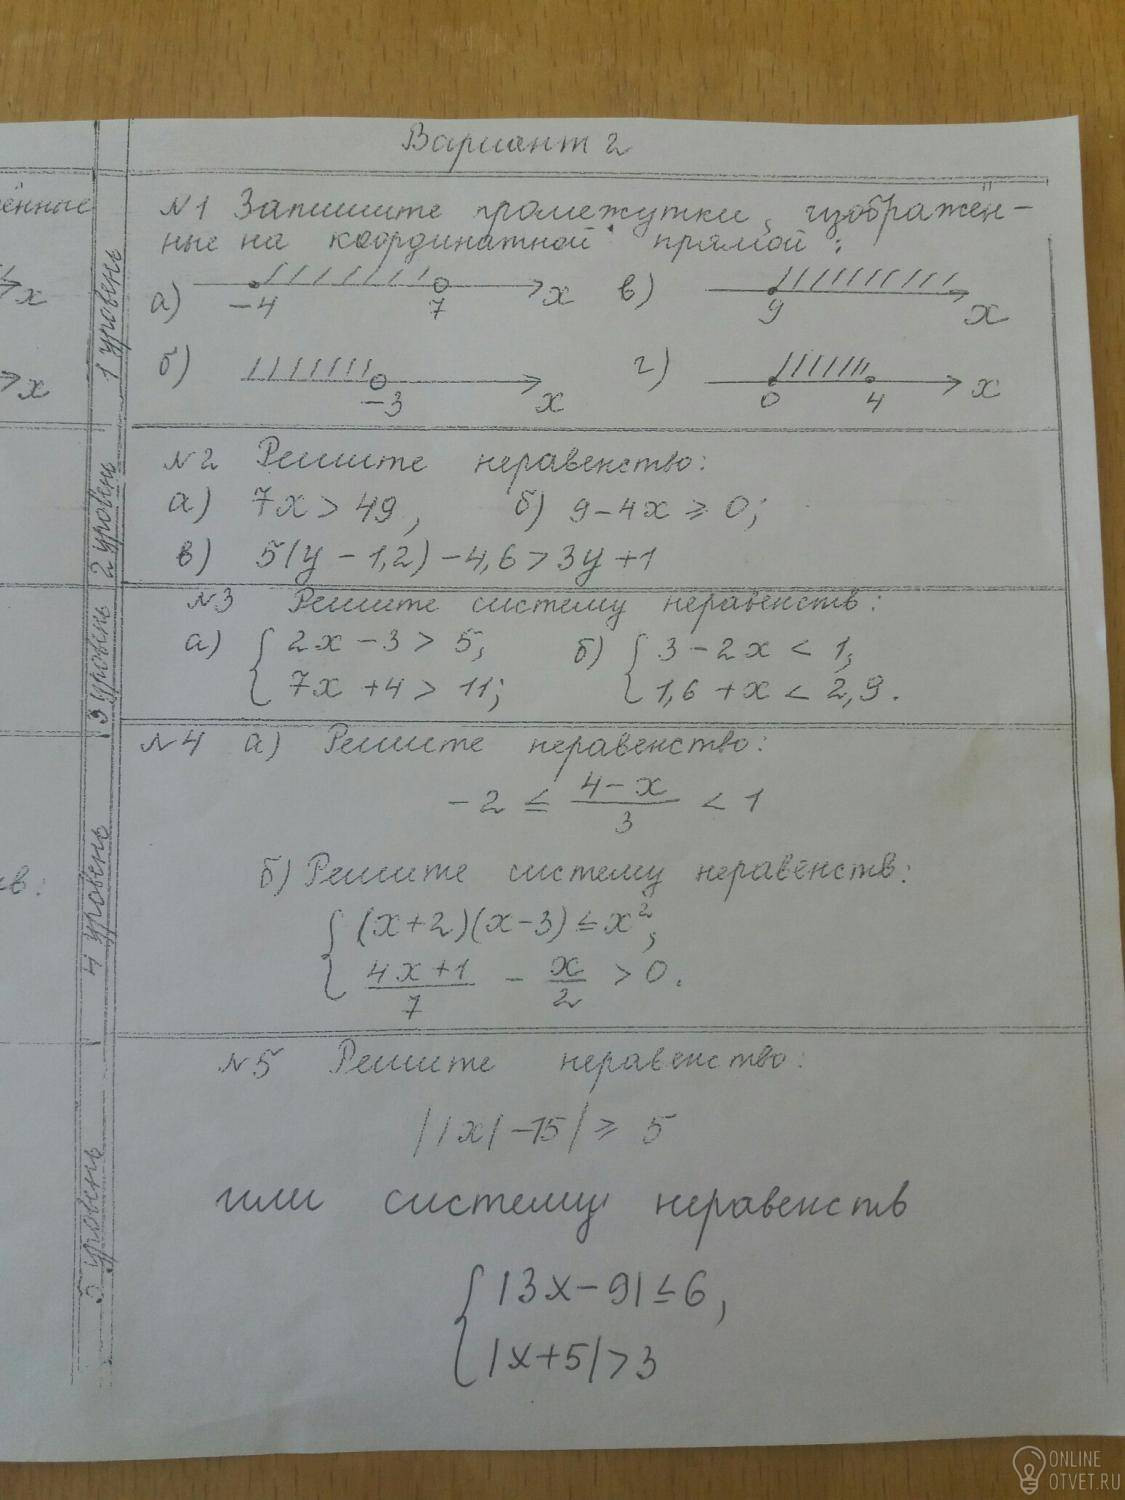 Вариант 2
ённые
№1 Запишите промежутки, изображен-
ные на координатной прямой:
а) -4 7 x в) 9 x
x
б) -3 x г) 0 4 x
x
1 уровень
№2 Решите неравенство:
а) 7x > 49, б) 9-4x ≥ 0;
в) 5(y - 1,2) - 4,6 > 3y + 1
2 уровень
№3 Решите систему неравенств:
а) { 2x - 3 > 5, б) { 3 - 2x < 1,
7x + 4 > 11; 1,6 + x < 2,9.
3 уровень
№4 а) Решите неравенство:
-2 ≤ (4-x)/3 < 1
б) Решите систему неравенств:
{ (x+2)(x-3) ≤ x²,
(4x+1)/7 - x/2 > 0.
4 уровень
в:
№5 Решите неравенство:
||x|-15| ≥ 5
или систему неравенств
{ |3x-9| ≤ 6,
|x+5| > 3
5 уровень
ONLINE
OTVET.RU